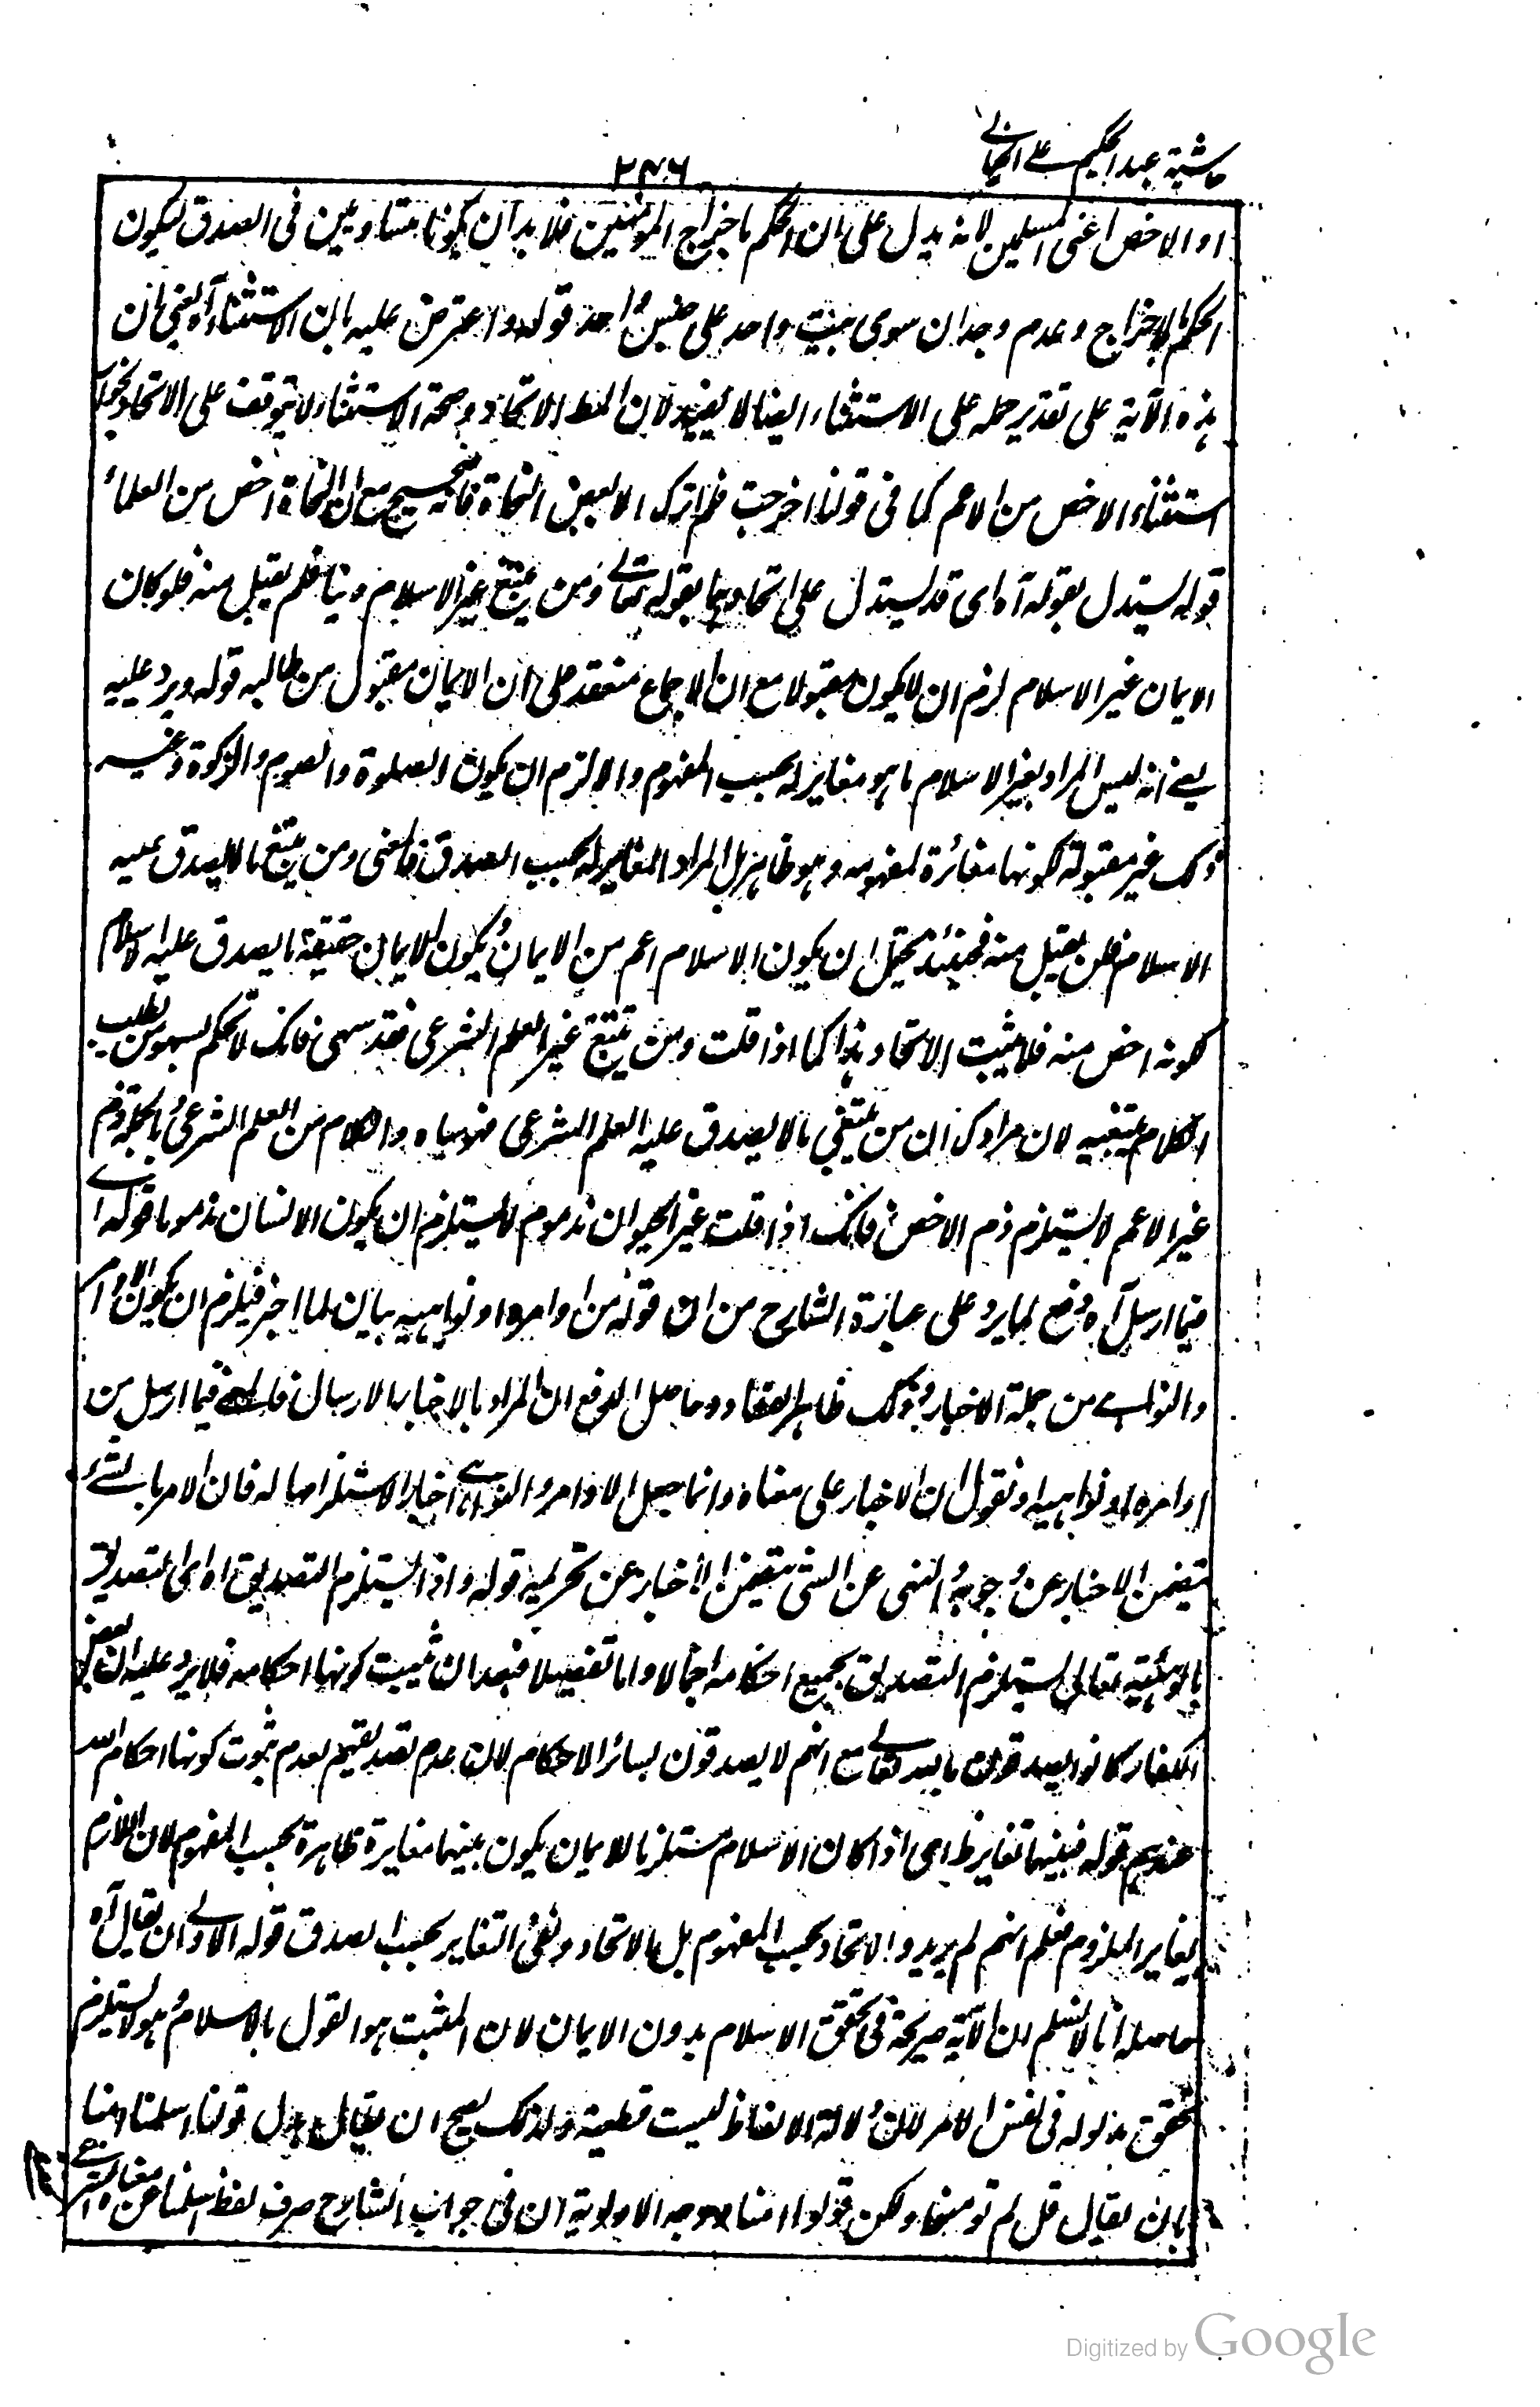 حاشية عبد الحكيم على الخيالي
٢٤٦
او الاخص اعنى المسلمين لانه يدل على ان الحكم باخراج المؤمنين فلا بد ان يكونا متساويين فى الصدق ليكون
الحكم بالاخراج وعدم وجدان سوى بيت واحد على جنس واحد قوله واعترض عليه بان الاستثناء آه يعنى ان
هذه الآية على تقدير حمله على الاستثناء ايضا لا يفيد لان المط الاتحاد وصحة الاستثناء لا يتوقف على الاتحاد لجواز
استثناء الاخص من الاعم كما فى قولنا اخرجت فلم اترك الا بعض النحاة فانه صحيح مع ان النحاة اخص من العلماء
قوله يستدل بقوله آه اى قد يستدل على اتحادهما بقوله تعالى ومن يبتغ غير الاسلام دينا فلم يقبل منه فلو كان
الايمان غير الاسلام لزم ان لا يكون مقبولا مع ان الاجماع منعقد على ان الايمان مقبول من طالبه قوله ويرد عليه
يعنى انه ليس المراد بغير الاسلام ما هو مغاير له بحسب المفهوم والا لزم ان يكون الصلوة والصوم والزكوة وغير
ذلك غير مقبولة لكونها مغائرة لمفهومه وهو ظاهر بل المراد المغاير له بحسب الصدق فالمعنى ومن يبتغ ما لا يصدق عليه
الاسلام فلن يقبل منه فحينئذ يحتمل ان يكون الاسلام اعم من الايمان ويكون للايمان حقيقة ما يصدق عليه الاسلام
لكونه اخص منه فلا يثبت الاتحاد هذا كما اذا قلت ومن يبتغ غير العلم الشرعى فقد سهى فانك لا تحكم بسهو من يطلب
الكلام يبتغيه لان مرادك ان من يبتغى ما لا يصدق عليه العلم الشرعى فهو ساه والكلام من العلم الشرعى وبالجملة ذم
غير الاعم لا يستلزم ذم الاخص فانك اذا قلت غير الحيوان مذموم لا يستلزم ان يكون الانسان مذموما قوله اى
فيما ارسل آه دفع لما يرد على عبارة الشارح من ان قوله من اوامره او نواهيه بيان لما اخبر فيلزم ان يكون الاوامر
والنواهى من جملة الاخبار وذلك ظاهر الفساد وحاصل الدفع ان المراد بالاخبار الارسال فالمعنى فيما ارسل من
اوامره او نواهيه او نقول ان الاخبار على معناه وانما جعل الاوامر والنواهى اخبارا لاستلزامها له فان الامر بالشئ
يتضمن الاخبار عن وجوبه والنهى عن الشئ يتضمن الاخبار عن تحريمه قوله واذا يستلزم التصديق آه اى التصديق
بالوهيته تعالى يستلزم التصديق بجميع احكامه اجمالا واما تفصيلا فبعد ان يثبت كونها احكامه فلا يرد عليه ان بعض
الكفار كانوا يصدقون بالله تعالى مع انهم لا يصدقون بسائر الاحكام لان عدم تصديقهم لعدم ثبوت كونها احكام الله
عندهم قوله فبينهما تغاير ظ اى اذا كان الاسلام مستلزما للايمان يكون بينهما مغايرة ظاهرة بحسب المفهوم لان اللازم
يغاير الملزوم فعلم انهم لم يريدوا الاتحاد بحسب المفهوم بل بالاتحاد ونفى التغاير بحسب الصدق قوله الاولى ان يقال آه
حاصله انا لا نسلم ان الآية صريحة فى تحقق الاسلام بدون الايمان لان المثبت هو القول بالاسلام وهو لا يستلزم
تحقق مدلوله فى نفس الامر لان دلالة الالفاظ ليست قطعية ولذلك يصح ان يقال بدل قولنا اسلمنا امنا
بان يقال قل لم تؤمنوا ولكن قولوا امنا ووجه الاولوية ان فى جواب الشارح صرف لفظ اسلمنا عن معناه الشرعى